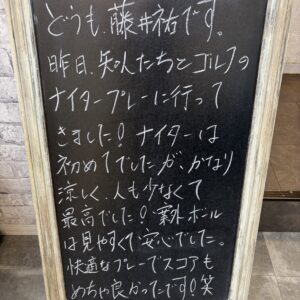 どうも、藤井祐です。
昨日、知人たちとゴルフの
ナイタープレーに行って
きました！ナイターは
初めてでしたが、かなり
涼しく、人も少なくて
最高でした！案外ボール
は見やすくて安心でした。
快適なプレーでスコアも
めちゃ良かったです！笑